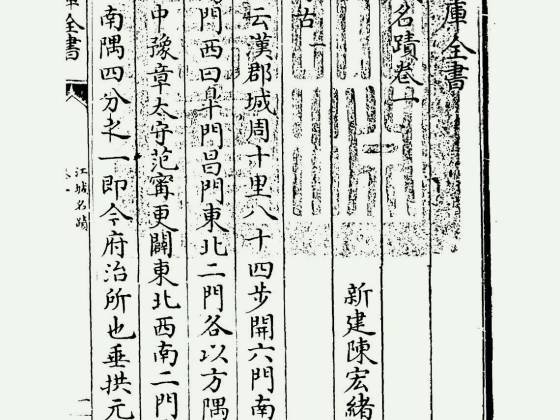 庫全書
名蹟卷一
新建陳宏緒
古一
云漢郡城周十里八十四步開六門南
門西曰皐門昌門東北二門各以方隅
中豫章太守范甯更闢東北西南二門
南隅四分之一即今府治所也垂拱元
庫全書
江城名蹟